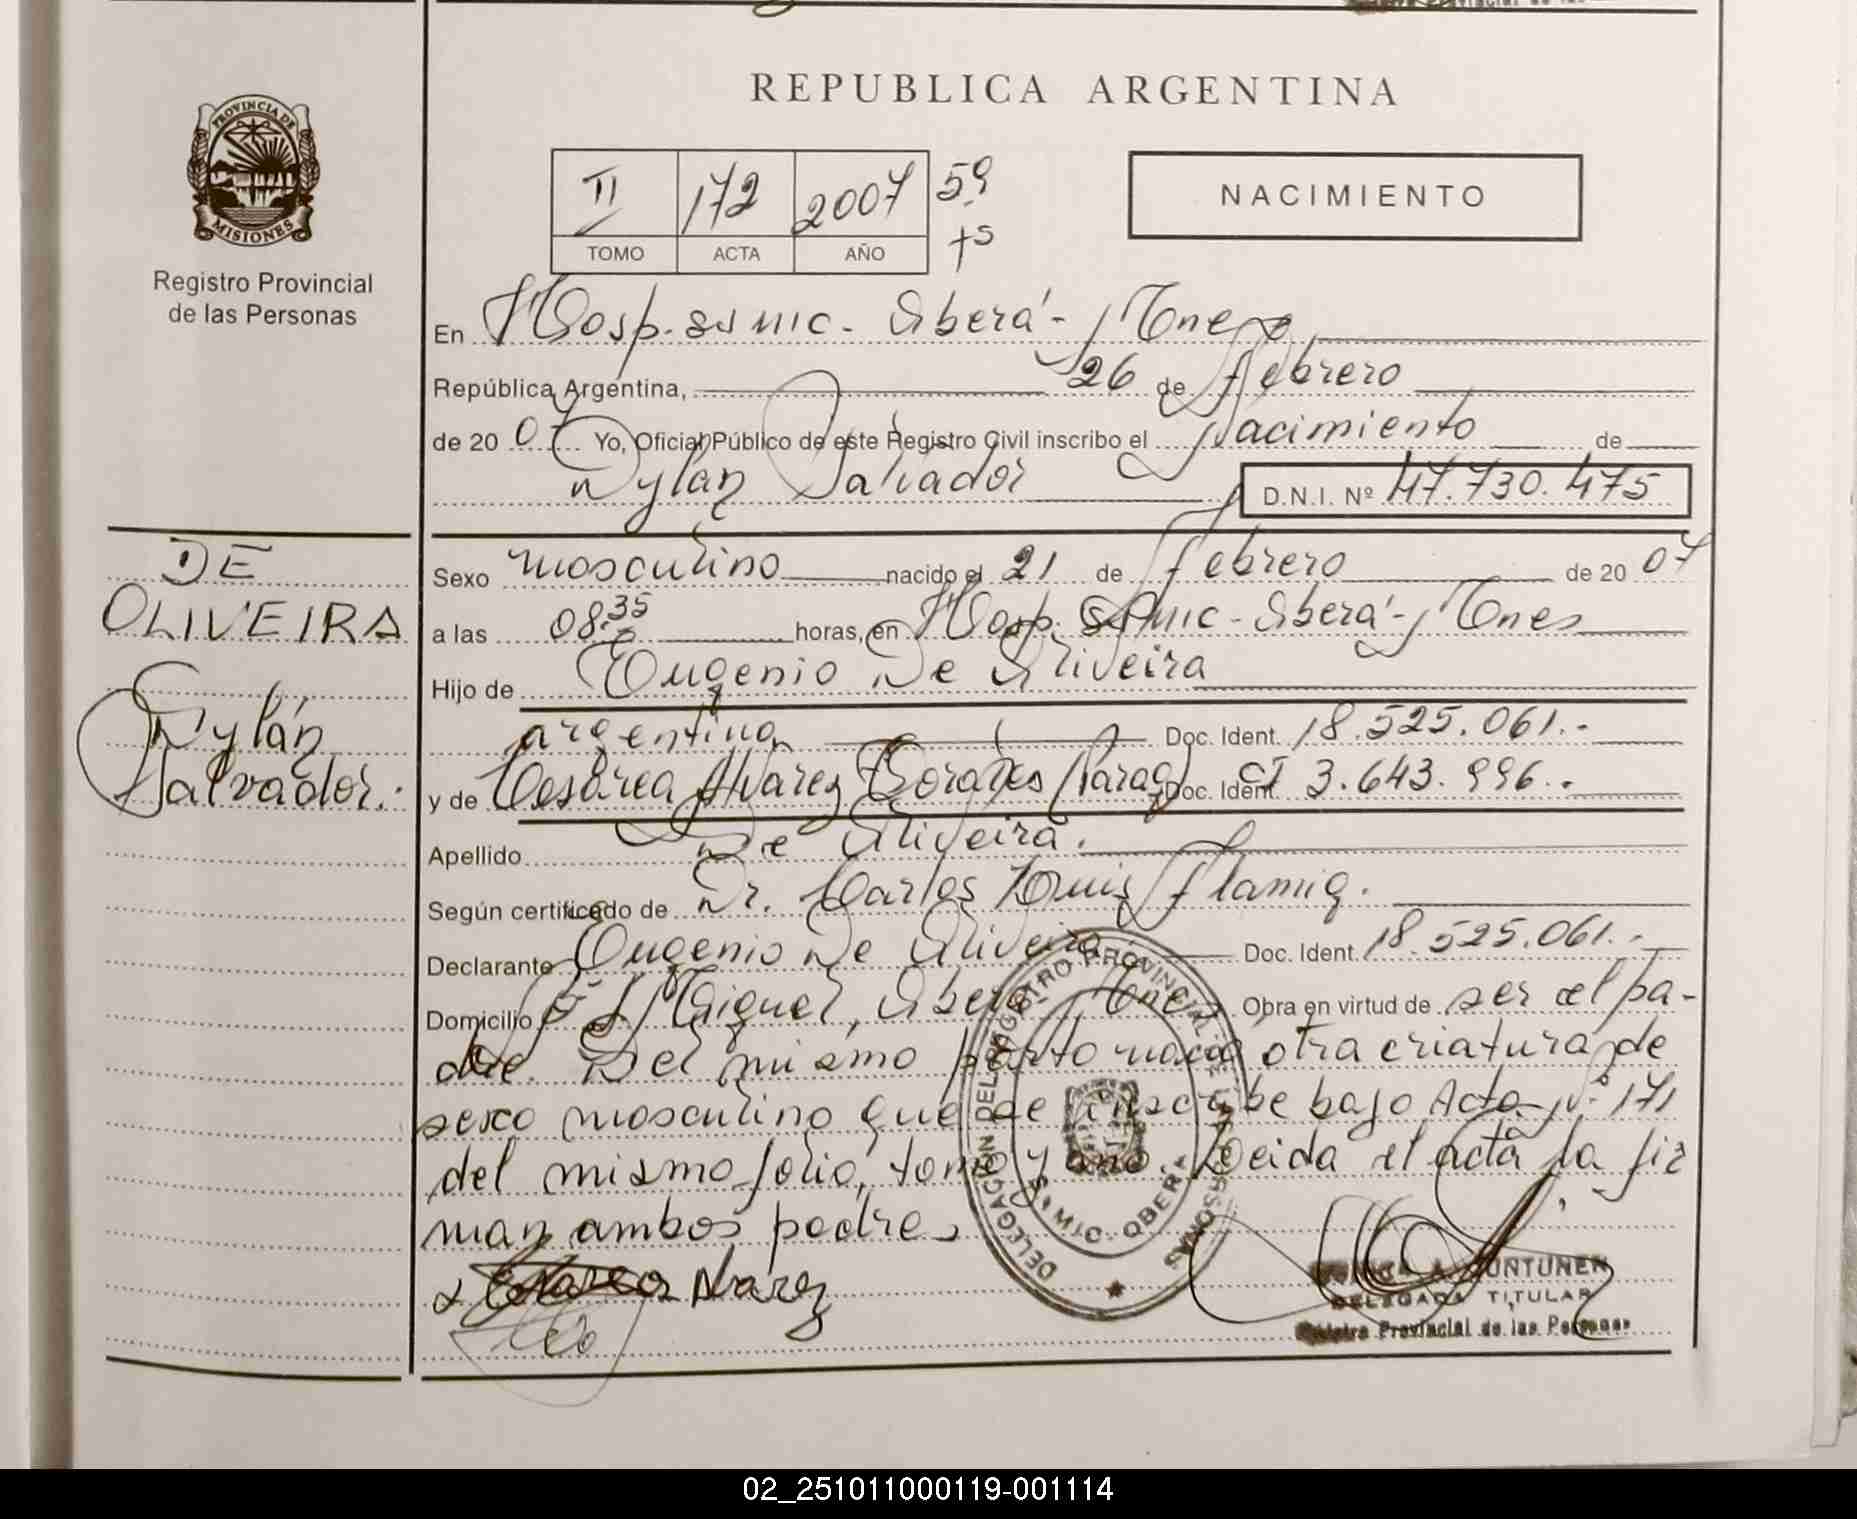 REPUBLICA ARGENTINA
PROVINCIA DE
MISIONES
Registro Provincial
de las Personas
II 172 2007 59
TOMO ACTA AÑO
NACIMIENTO
En Hosp. ssmic. Oberá - Mnes
República Argentina, 26 de febrero
de 20 07 Yo, Oficial Público de este Registro Civil inscribo el Nacimiento de
Dylán Salvador D.N.I. Nº 47.730.475
DE
OLIVEIRA
Dylán
Salvador.
Sexo masculino nacido el 21 de febrero de 20 07
a las 08:35 horas, en Hosp. SSmic - Oberá - Mnes
Hijo de Eugenio De Oliveira
argentino Doc. Ident. 18.525.061.-
y de Cesarea Alvarez (Parag) Doc. Ident CI 3.643.996.-
Apellido De Oliveira.
Según certificado de Dr. Carlos Luis Flamig.
Declarante Eugenio De Oliveira Doc. Ident. 18.525.061.-
Domicilio Miguel, Oberá Mnes Obra en virtud de ser el pa-
dre. Del mismo parto nace otra criatura de
sexo masculino que se inscribe bajo Acta Nº 171
del mismo folio, tomo y año. Leida el acta la fir
man ambos padres
Alvarez
DELEGACIÓN DEL REGISTRO PROVINCIAL DE LAS PERSONAS
S. MIC. OBERA
A. PUNTUNEN
DELEGADA TITULAR
Registro Provincial de las Personas
02_251011000119-001114